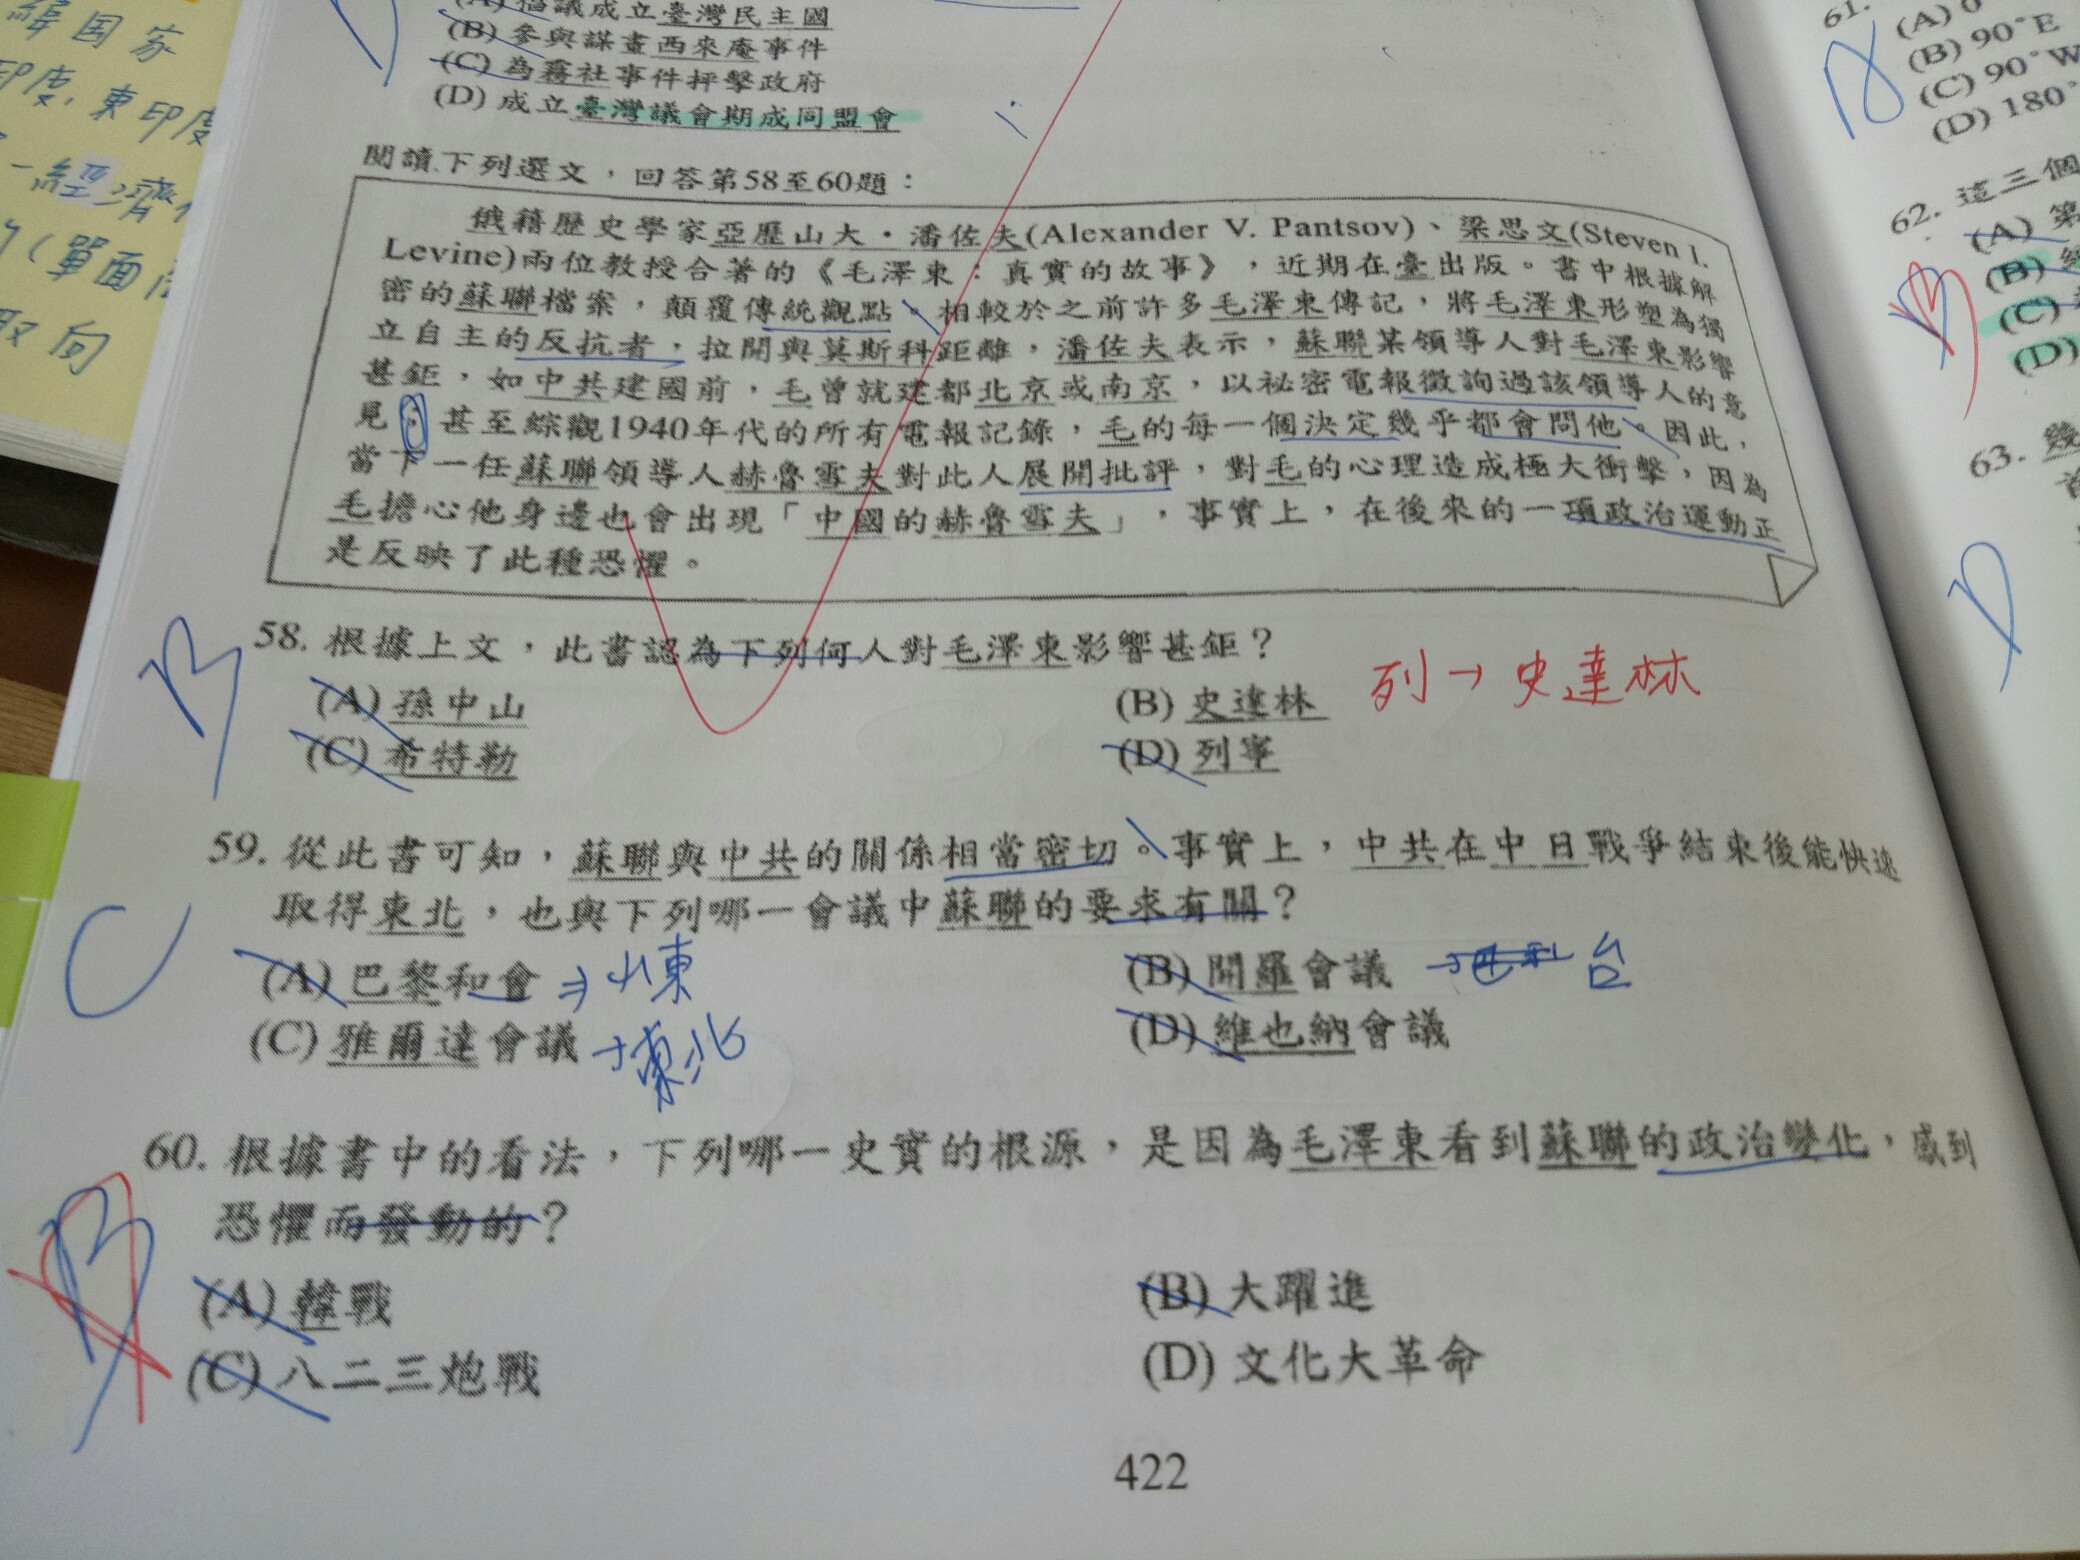 緯国家
印度,東印度
經濟
(單面
取向
(A) 倡議成立臺灣民主國
(B) 參與謀畫西來庵事件
(C) 為霧社事件抨擊政府
(D) 成立臺灣議會期成同盟會
閱讀下列選文，回答第58至60題：
俄籍歷史學家亞歷山大・潘佐夫(Alexander V. Pantsov)、梁思文(Steven I.
Levine)兩位教授合著的《毛澤東：真實的故事》，近期在臺出版。書中根據解
密的蘇聯檔案，顛覆傳統觀點。相較於之前許多毛澤東傳記，將毛澤東形塑為獨
立自主的反抗者，拉開與莫斯科距離，潘佐夫表示，蘇聯某領導人對毛澤東影響
甚鉅，如中共建國前，毛曾就建都北京或南京，以祕密電報徵詢過該領導人的意
見；甚至綜觀1940年代的所有電報記錄，毛的每一個決定幾乎都會問他。因此，
當下一任蘇聯領導人赫魯雪夫對此人展開批評，對毛的心理造成極大衝擊，因為
毛擔心他身邊也會出現「中國的赫魯雪夫」，事實上，在後來的一項政治運動正
是反映了此種恐懼。
B 58. 根據上文，此書認為下列何人對毛澤東影響甚鉅？
(A) 孫中山 (B) 史達林 列→史達林
(C) 希特勒 (D) 列寧
59. 從此書可知，蘇聯與中共的關係相當密切。事實上，中共在中日戰爭結束後能快速
C 取得東北，也與下列哪一會議中蘇聯的要求有關？
(A) 巴黎和會 ⇒山東 (B) 開羅會議 → 台
(C) 雅爾達會議 →東北 (D) 維也納會議
60. 根據書中的看法，下列哪一史實的根源，是因為毛澤東看到蘇聯的政治變化，感到
恐懼而發動的？
(A) 韓戰 (B) 大躍進
(C) 八二三炮戰 (D) 文化大革命
422
61.
(A) 0°
(B) 90°E
(C) 90°W
(D) 180°
62. 這三個
(A) 第
(B)
(C)
(D)
63. 幾